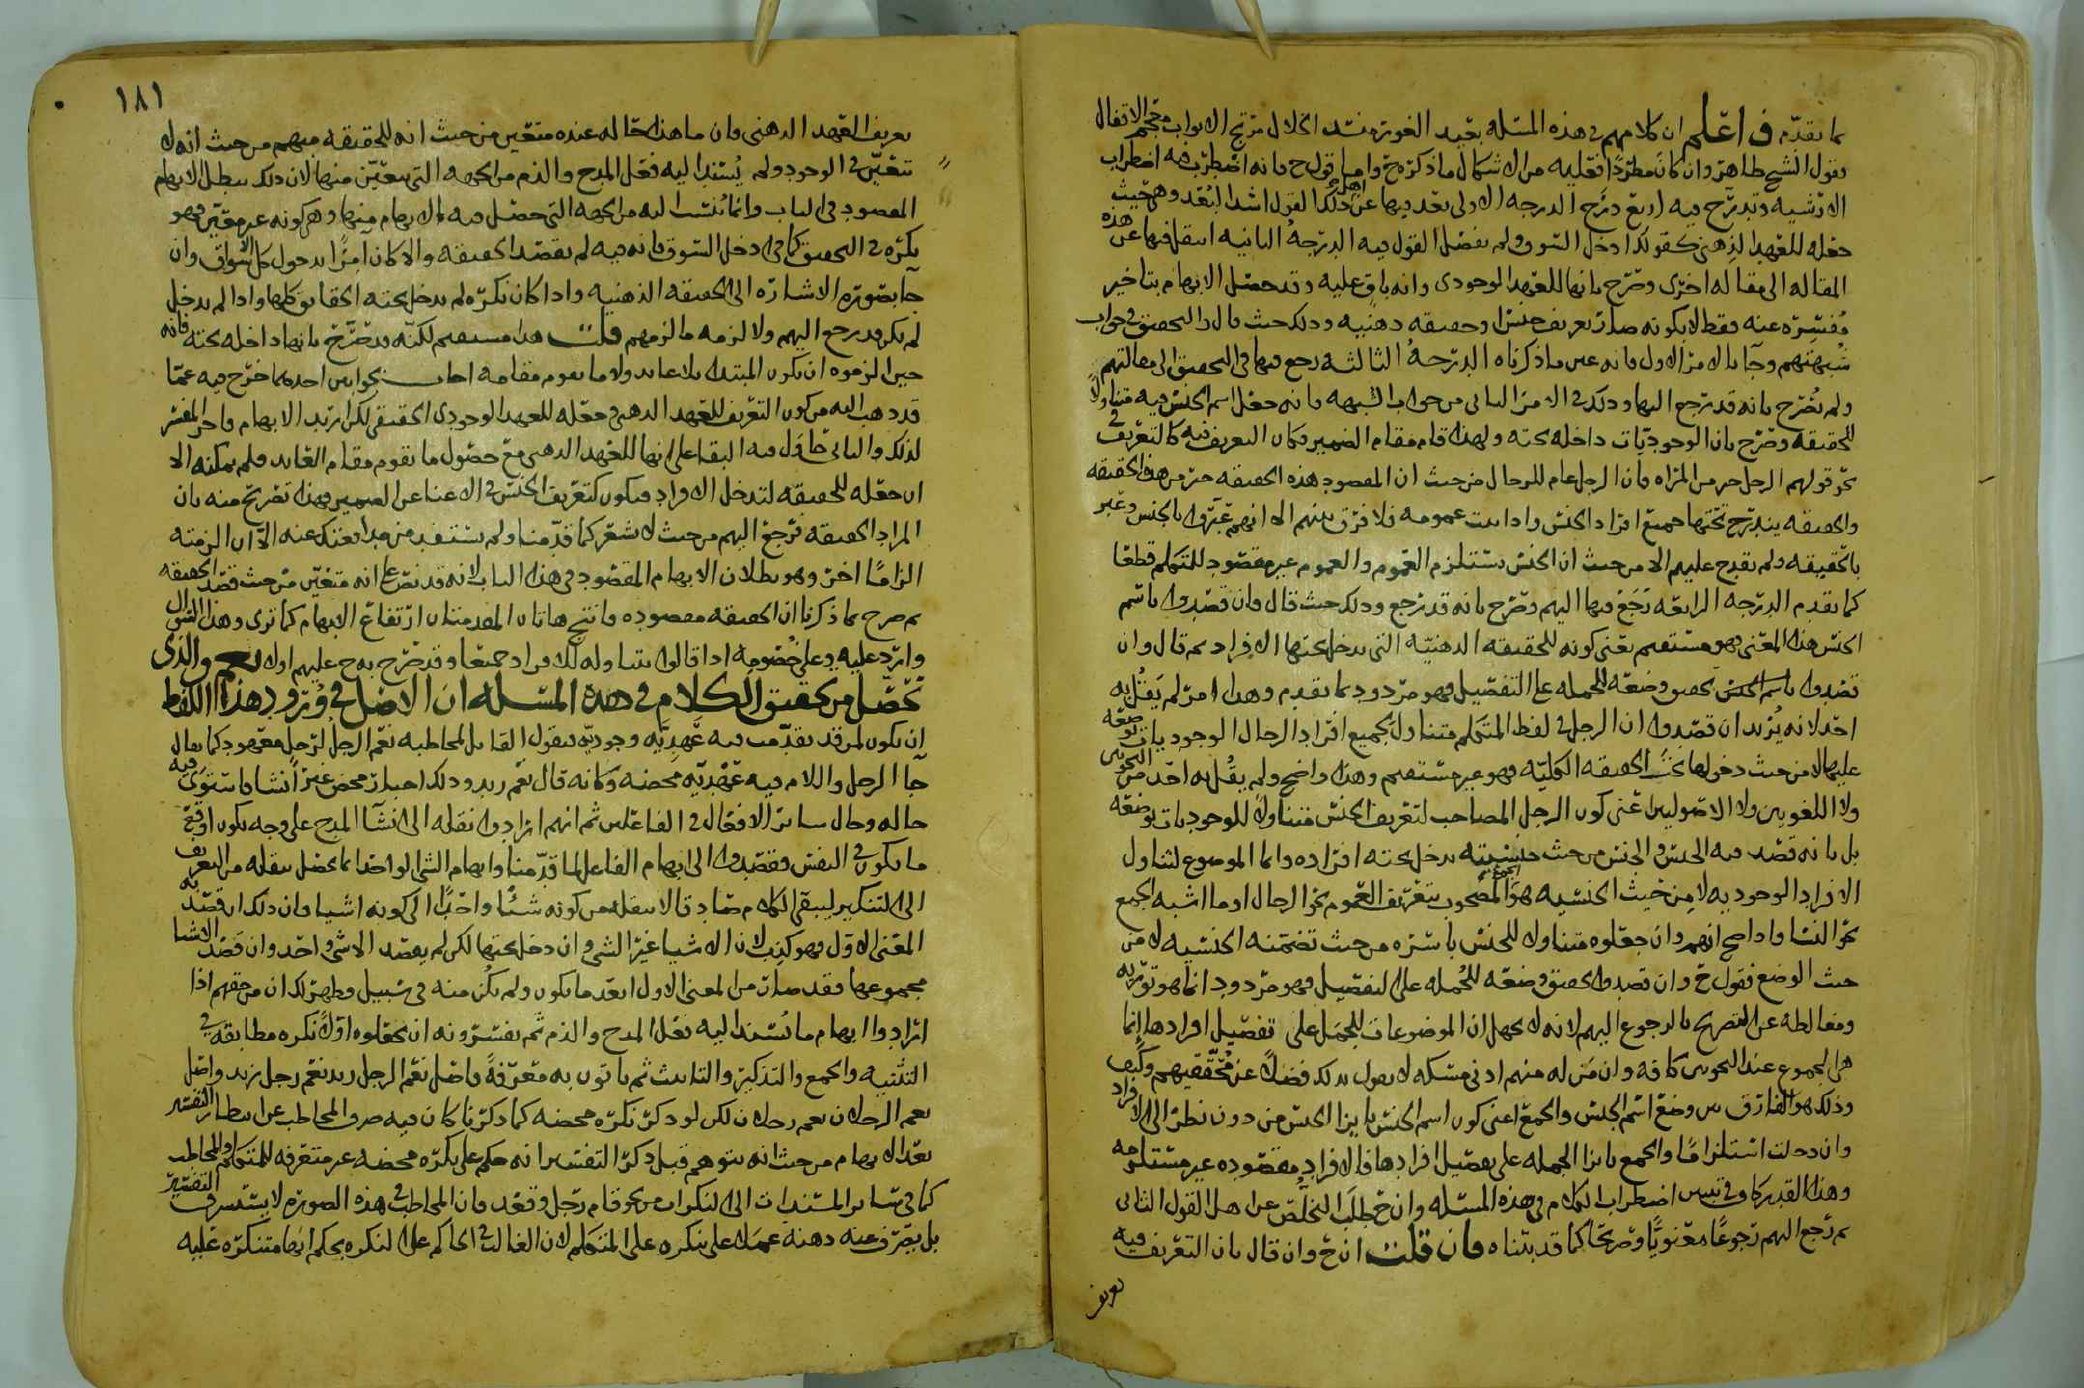 ما تقدم فاعلم ان كلامهم في هذه المسئلة بعيد الغور منسد الخلال مرتج الابواب محكم الاقفال
فقول الشيخ ظاهر وان كان مطردا فعليه من الاشكال ما ذكره ح واما قول ح فانه اضطرب فيه اضطراب
الارشيه وتدرج فيه اربع درج الدرجه الاولى بعد فيها عن اهل ذلك القول اشد البعد وهي حيث
جعله للعهد الذهني كقولك ادخل السوق ولم يفصل القول فيه الدرجة الثانيه انتقل فيها عن هذه
المقاله الى مقاله اخرى وصرح بانها للعهد الوجودي وانه باق عليه وقد حصل الابهام بتاخير
مفسره عنه فقط لا بكونه صار تعريف جنس او حقيقه ذهنيه وذلك حيث قال والتحقيق في جواب
شبهتهم وجا بالامر الاول فانه عين ما ذكرناه الدرجة الثالثه رجع فيها في التحقيق الى مقالتهم
ولم يصرح بانه قد رجع اليها وذلك في الامر الثاني من جواب الشبهه فانه جعل اسم الجنس فيه متناولا
للحقيقه وصرح بان الوجوديات داخله تحته ولهذا قام مقام الضمير وكان التعريف فيه كالتعريف في
نحو قولهم الرجل خير من المراه فان الرجل عام للرجال من حيث ان المقصود هذه الحقيقه خير من هذه الحقيقه
والحقيقه يندرج تحتها جميع افراد الجنس واذا ثبت عمومه فلا فرق بينهم الا انهم عبروا بالجنس وعبر
بالحقيقه ولم يقدح عليهم الا من حيث ان الجنس يستلزم العموم والعموم غير مقصود للمتكلم قطعا
كما تقدم الدرجه الرابعه رجع فيها اليهم وصرح بانه قد رجع وذلك حيث قال وان قصدوا باسم
الجنس هذا المعنى فهو مستقيم يعني كونه للحقيقه الذهنيه التي يدخل تحتها الافراد ثم قال وان
قصدوا باسم الجنس تحقيق وضعه للجمله على التفصيل فهو مردود بما تقدم وهذا امر لم يقل به
احد لانه يريد ان قصدوا ان الرجل في لفظ المتكلم متناول لجميع افراد الرجال الوجوديات بوضعه
عليها لا من حيث دخولها تحت الحقيقه الكليه فهو غير مستقيم وهذا واضح ولم يقل به احد من النحويين
ولا اللغويين ولا الاصوليين اعني كون الرجل المصاحب لتعريف الجنس متناولا للوجوديات بوضعه
بل بانه قصد فيه الجنس والجنس من حيث جنسيته يدخل تحته افراده وانما الموضوع لتناول
الافراد الوجوديه لا من حيث الجنسيه هو الجمع المصحوب بتعريف العموم نحو الرجال او ما اشبه الجمع
نحو النسا واذا صح انهم وان جعلوه متناولا للجنس باسره من حيث تضمنه الجنسيه لا من
حيث الوضع فقول ح وان قصدوا تحقيق وضعه للجمله على التفصيل فهو مردود انما هو توريه
ومغالطه عن التصريح بالرجوع اليهم لانه لا يجهل ان الموضوعات للجمل على تفصيل افرادها انما
هي الجموع عند النحويين كافه وان من له منهم ادنى مسكه لا يقول بذلك فضلا عن محققيهم وكيف
وذلك هو الفارق بين وضع اسم الجنس والجمع اعني كون اسم الجنس بازا الجنس من دون نظر الى الافراد
وان دخلت استلزاما والجمع بازا الجمله على تفصيل افرادها فالافراد مقصوده غير مستلزمه
وهذا القدر كاف في تبيين اضطراب الكلام في هذه المسئله وان ح طلب التخلص عن اهل القول الثاني
ثم رجع اليهم رجوعا معنويا وصريحا كما قد بيناه فان قلت ان ح وان قال بان التعريف فيه
تعريف
١٨١
تعريف العهد الذهني فان ما هذا حاله عنده متعين من حيث انه للحقيقه مبهم من حيث انه لا
تتعين في الوجود ولم يسند اليه فعل المدح والذم من الجهه التي يتعين منها لان ذلك يبطل الابهام
المقصود في الباب وانما ينسب اليه من الجهه التي حصل فيه الابهام منها وهي كونه غير معين فهو
نكره في التحقيق كما في ادخل السوق فانه فيه لم يقصد الحقيقه والا كان امرا بدخول كل الاسواق وان
جا بصوره الاشاره الى الحقيقه الذهنيه واذا كان نكره لم يدخل تحته الحقايق كلها واذا لم يدخل
لم يكن قد رجع اليهم ولا لزمه ما لزمهم قلت هذا مستقيم لكنه قد صرح بانها داخله تحته فانه
حين الزموه ان يكون المبتدا بلا عايد ولا ما يقوم مقامه اجاب بجوابين احدهما خرج فيه عما
قد ذهب اليه من كون التعريف للعهد الذهني فجعله للعهد الوجودي الحقيقي لكن اريد الابهام فاخر المفسر
لذلك والثاني حاول فيه البقا على انها للعهد الذهني مع حصول ما يقوم مقام العايد فلم يمكنه الا
ان جعله للحقيقه لتدخل الافراد فيكون كتعريف الجنس في الاغنا عن الضمير فهذا تصريح منه بان
المراد الحقيقه فرجع اليهم من حيث لا يشعر كما قدمنا ولم يستفد من هذا بعدك عنه الا ان الزمته
الزاما اخر وهو بطلان الابهام المقصود في هذا الباب لانه قد نص على انه متعين من حيث قصد الحقيقه
ثم صرح بما ذكرنا ان الحقيقه مقصوده فانتج هاتان المقدمتان ارتفاع الابهام كما ترى وهذا السوال
وارد عليه وعلى خصومه اذا قالوا بتناوله للافراد جميعا وقد صرح به ح عليهم اولا نعم والذي
تحصل من تحقيق الكلام في هذه المسئله ان الاصل في ورود هذا اللفظ
ان يكون لمن قد تقدمت فيه عهديه وجوديه فيقول القايل لمخاطبه نعم الرجل لرجل معهود كما يقال
جا الرجل واللام فيه عهديه محضه وكانه قال نعم زيد وذلك اخبار محض غير انشا فاستوى فيه
حاله وحال سائر الافعال في الفاعلين ثم انهم ارادوا نقله الى انشا المدح على وجه يكون اوقع
ما يكون في النفس فقصدوا الى ابهام الفاعل لما قدمنا وابهام الشي الواحد انما يحصل بنقله من التعريف
الى التنكير ليبقى الكلام صادقا لا بنقله من كونه شيئا واحدا الى كونه اشيا وان ذلك ان قصد به
المعنى الاول فهو كذب لان الاشيا غير الشي وان دخل تحتها لكن لم يقصد الا شي واحد وان قصد الاشيا
مجموعها فقد صار من المعنى الاول ابعد ما يكون ولم يكن منه في سبيل وظهر لك ان من حقهم اذا
ارادوا ابهام ما يسند اليه فعل المدح والذم ثم يفسرونه ان يجعلوه اولا نكره مطابقه في
التثنيه والجمع والتذكير والتانيث ثم ياتون به معرفة فاصل نعم الرجل زيد نعم رجل زيد واصل
نعم الرجلان نعم رجلان لكن لو ذكر نكره محضه كما ذكرنا كان فيه صرف المخاطب عن انتظار التفسير
بعد الابهام من حيث انه يتوهم قبل ذكر التفسير انه حكم على نكره محضه غير متعرفه للمتكلم والمخاطب
كما في سائر المسندات الى النكرات نحو قام رجل وقعد فان المخاطب في هذه الصوره لا يستشرف التفسير
بل يصرف عنه ذهنه عملا على نكره على المتكلم لان الغالب في الحاكم على النكره بحكم انها متنكره عليه